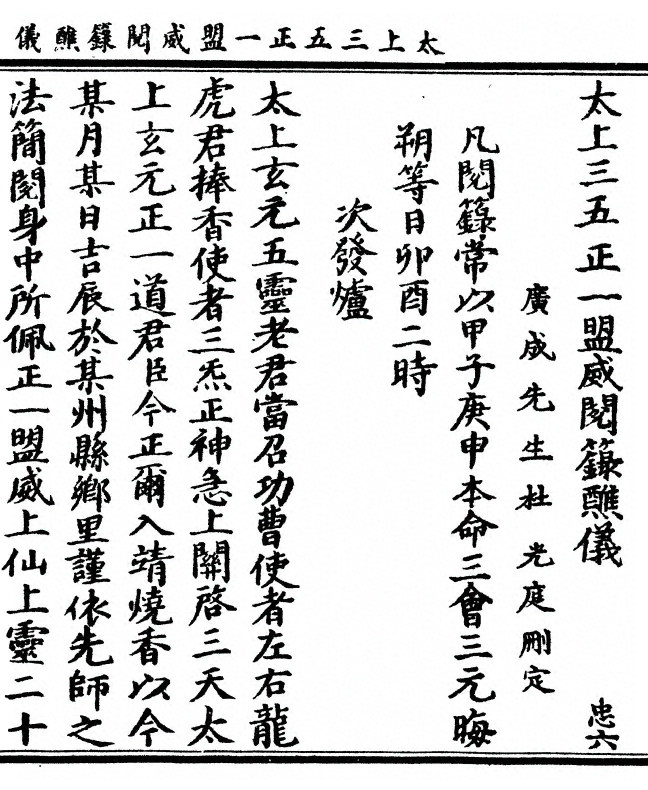 太上三五正一盟威閱籙醮儀
太上三五正一盟威閱籙醮儀 忠六
廣成先生杜光庭刪定
凡閱籙常以甲子庚申本命三會三元晦
朔等日卯酉二時
次發爐
太上玄元五靈老君當召功曹使者左右龍
虎君捧香使者三炁正神急上關啓三天太
上玄元正一道君臣今正爾入靖燒香以今
某月某日吉辰於某州縣鄉里謹依先師之
法簡閱身中所佩正一盟威上仙上靈二十